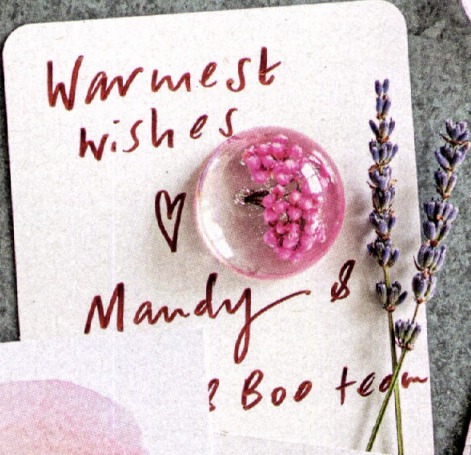 Warmest
wishes
Mandy &
& Boo team